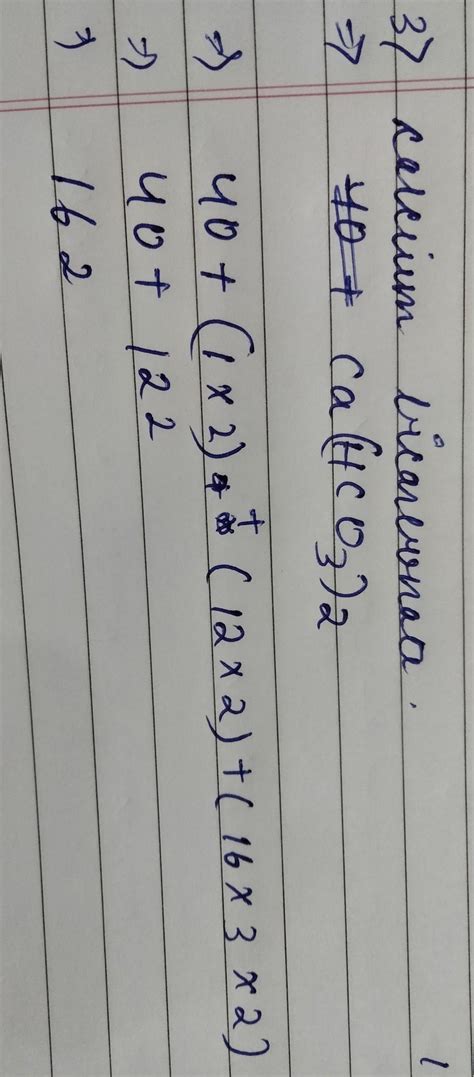 3) calcium bicarbonate.
⇒ 40+ Ca(HCO3)2
⇒ 40 + (1 x 2) + (12 x 2) + (16 x 3 x 2)
⇒ 40 + 122
⇒ 162